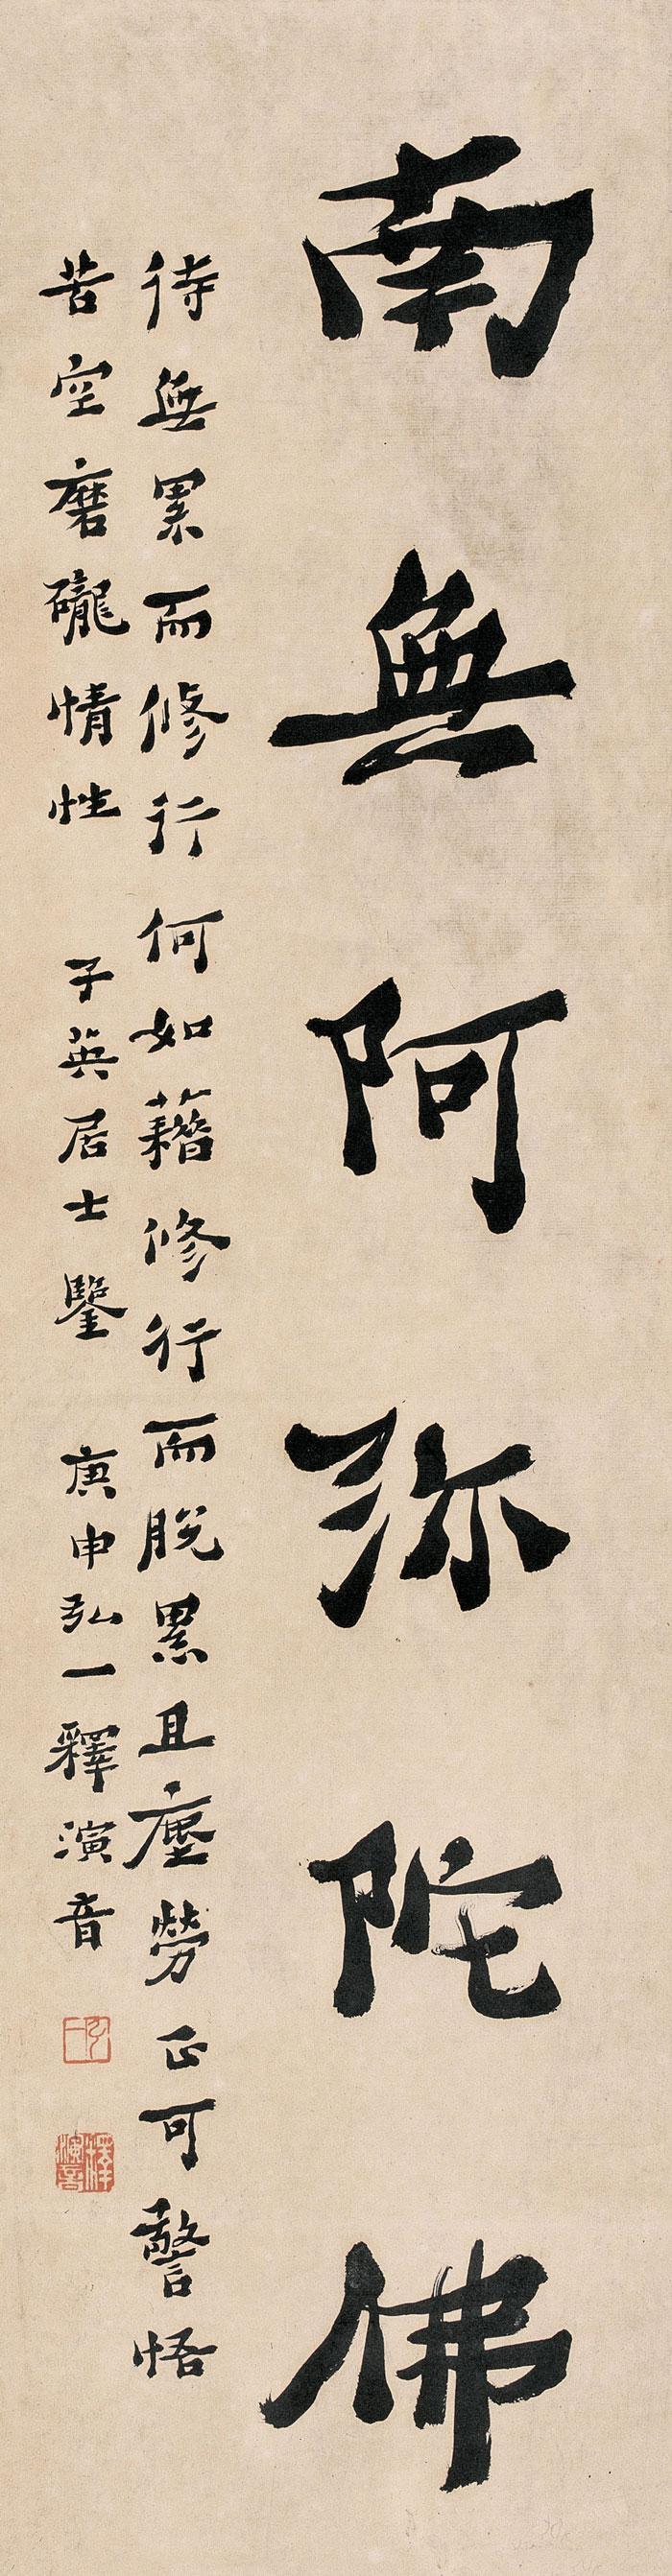 南無阿弥陀佛
待無累而修行何如藉修行而脫累且塵勞正可警悟
苦空磨礲情性 子英居士鑒 庚申弘一釋演音
弘一
釋演音